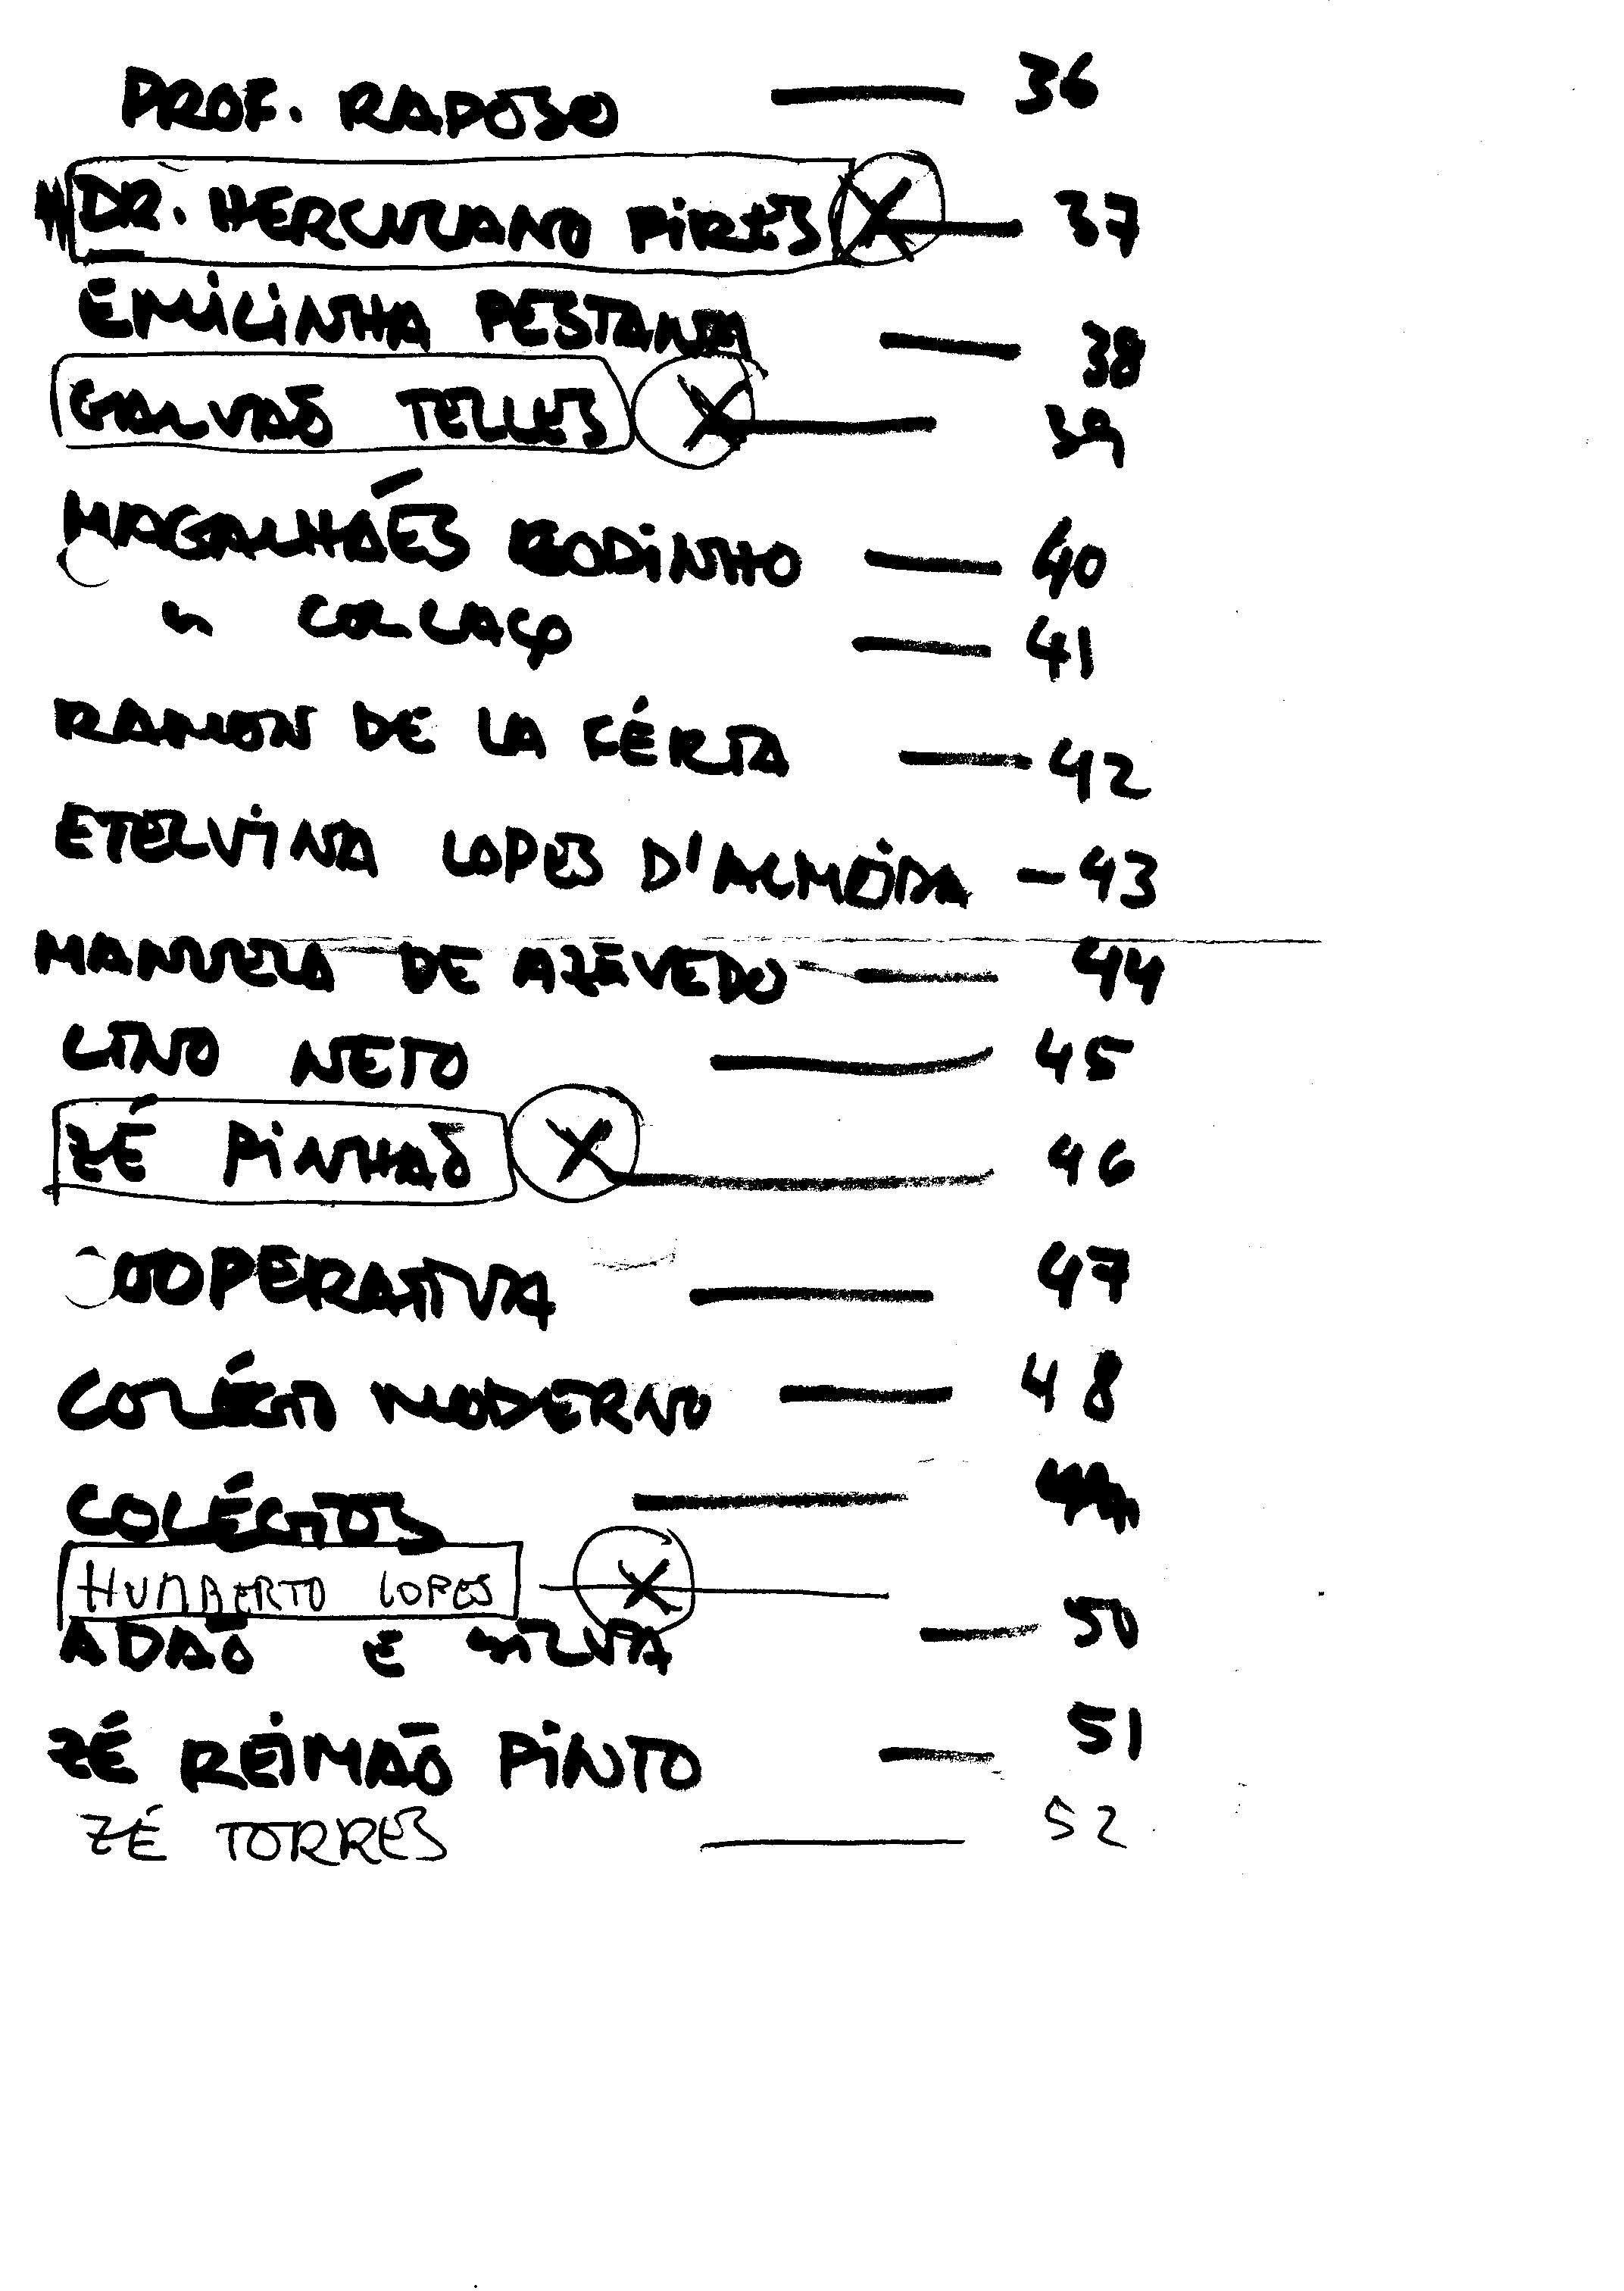 PROF. RAPOSO — 36
DR. HERCULANO PIRES X — 37
EMILINHA PESTANA — 38
GALVÃO TELLES X — 39
MAGALHÃES GODINHO — 40
" COLLAÇO — 41
RAMON DE LA FÉRIA — 42
ETELVINA LOPES D'ALMEIDA — 43
MANUELA DE AZEVEDO — 44
LINO NETO — 45
ZÉ PINHÃO X — 46
COOPERATIVA — 47
COLÉGIO MODERNO — 48
COLÉGIOS —
HUMBERTO LOPES — X —
ADÃO E SILVA — 50
ZÉ REIMÃO PINTO — 51
ZÉ TORRES — 52